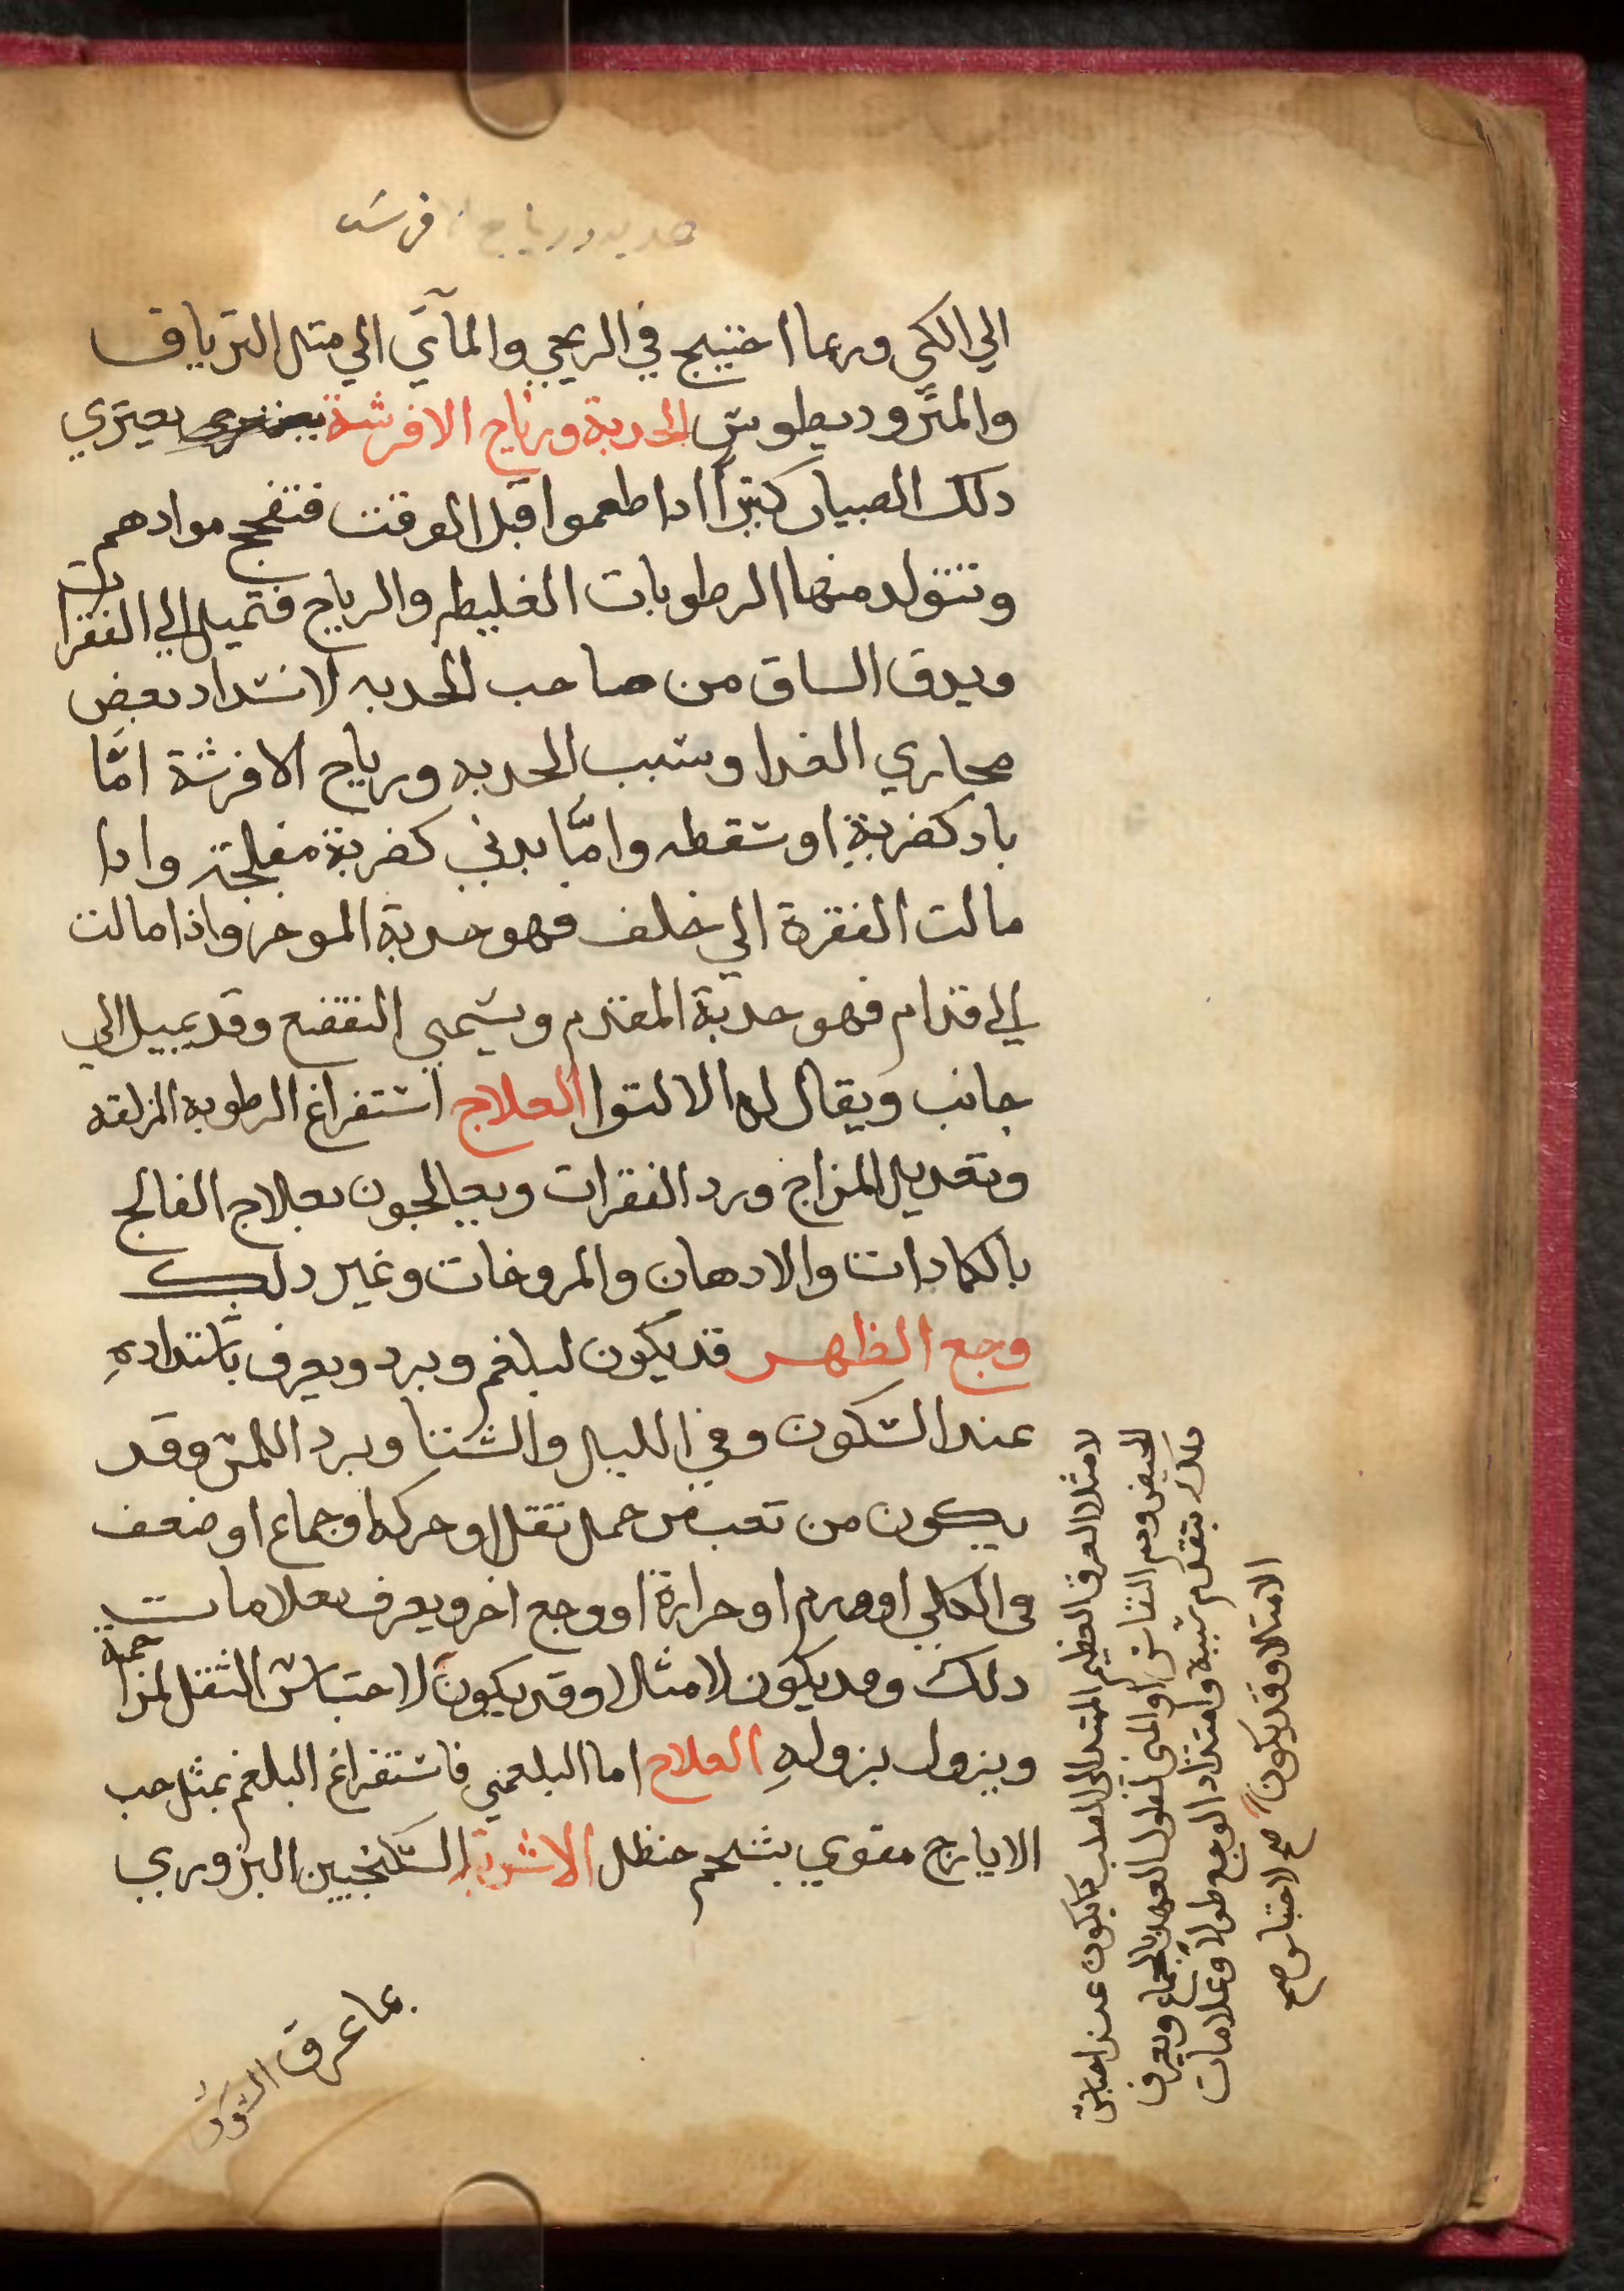 حدبه ورياح افرسه
الي الكي وربما احتيج في الريحي والمآئي الي متل الترياق
والمتروديطوس الحدبة ورياح الافرشة يعتري
دلك الصبيان كتيراً ادا طعموا قبل الوقت فتفجج موادهم
وتتولد منها الرطوبات الغليطه والرياح فتميل الي الفقرات
ويدق الساق من صاحب الحدبه لانسداد بعض
مجاري الغدا وسبب الحدبه ورياح الافرشة امّا
باد كضربةٍ او سقطه وامّا بدني كضربة مفلجة وادا
مالت الفقرة الي خلف فهو حدبة الموخر واذا مالت
الي قدام فهو حدبة المقدم ويسمي التقصع وقد يميل الي
جانب ويقال له الالتوا العلاج استفراغ الرطوبه المزلقه
وتعديل المزاج ورد الفقرات ويعالجون بعلاج الفالج
بالكمادات والادهان والمروخات وغير دلك
وجع الظهر قد يكون لبلغم وبرد ويعرف باشتدادهِ
عند السكون وفي الليل والشتا وبرد اللمس وقد
يكون من تعب من حمل تقل او حركه او جماع او ضعف
في الكلي او ورم او حرارة او وجع اخر ويعرف بعلامات
دلك وقد يكون لامتلا وقد يكون لاحتباس الثقل لمزاحمة
ويزول بزولهِ العلاج اما البلغمي فاستفراغ البلغم بمثل حب
الايارج مقوي بشحم حنظل الاشربة السكنجبين البزوري
لامتلا العرق العظيم الممتد الي الصلب كما يكون عند احتباس
الحيض ودم النفاس او المني لطول العهد بالجماع ويعرف
دلك بتقدم سببه وامتداد الوجع طولاً وعلامات
الامتلا وقد يكون صح لاحتباس صح
بما عرق